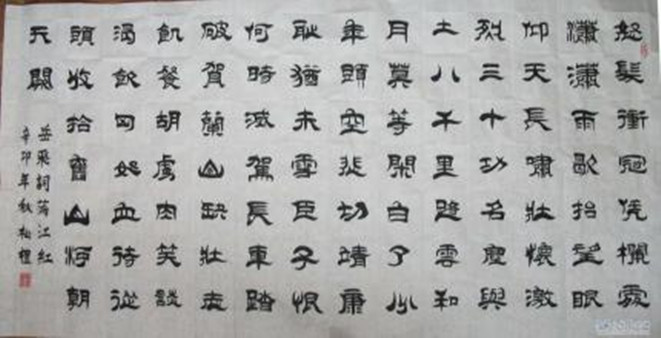 怒髮衝冠凭欄處
瀟瀟雨歇抬望眼
仰天長嘯壯懷激
烈三十功名塵與
土八千里路雲和
月莫等閑白了少
年頭空悲切靖康
耻猶未雪臣子恨
何時滅駕長車踏
破賀蘭山缺壯志
飢餐胡虜肉笑談
渴飲匈奴血待從
頭收拾舊山河朝
天闕
岳飛詞滿江紅
辛卯年秋柏